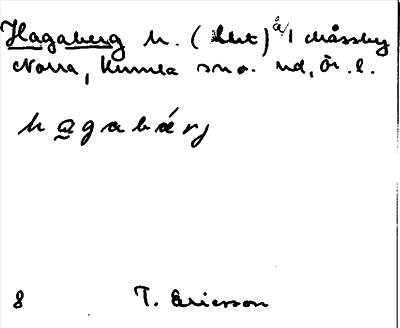 Hagaberg h. (lht) å/ Måssby
Norra, Kumla sn o. hd, Ör. l.
hagabärj
8 T. Ericsson